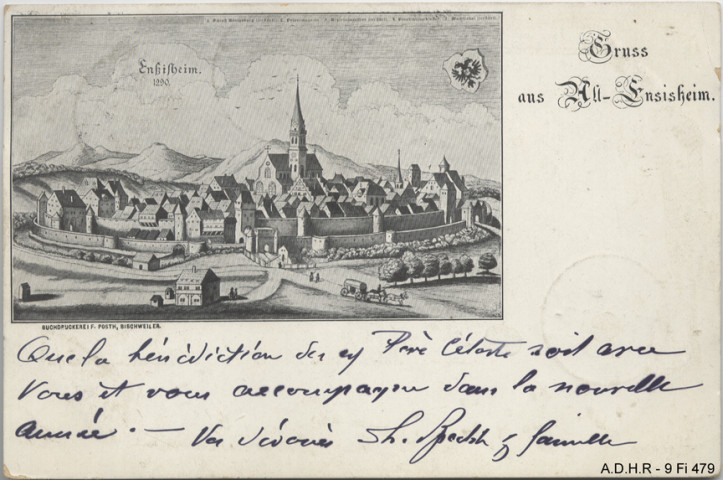 Enßisheim.
1290.
Gruss
aus Alt-Ensisheim.
BUCHDRUCKEREI F. POSTH, BISCHWEILER.
Que la bénédiction du Père Céleste soit avec
Vous et vous accompagne dans la nouvelle
année. — Vos dévoués famille
A.D.H.R - 9 Fi 479